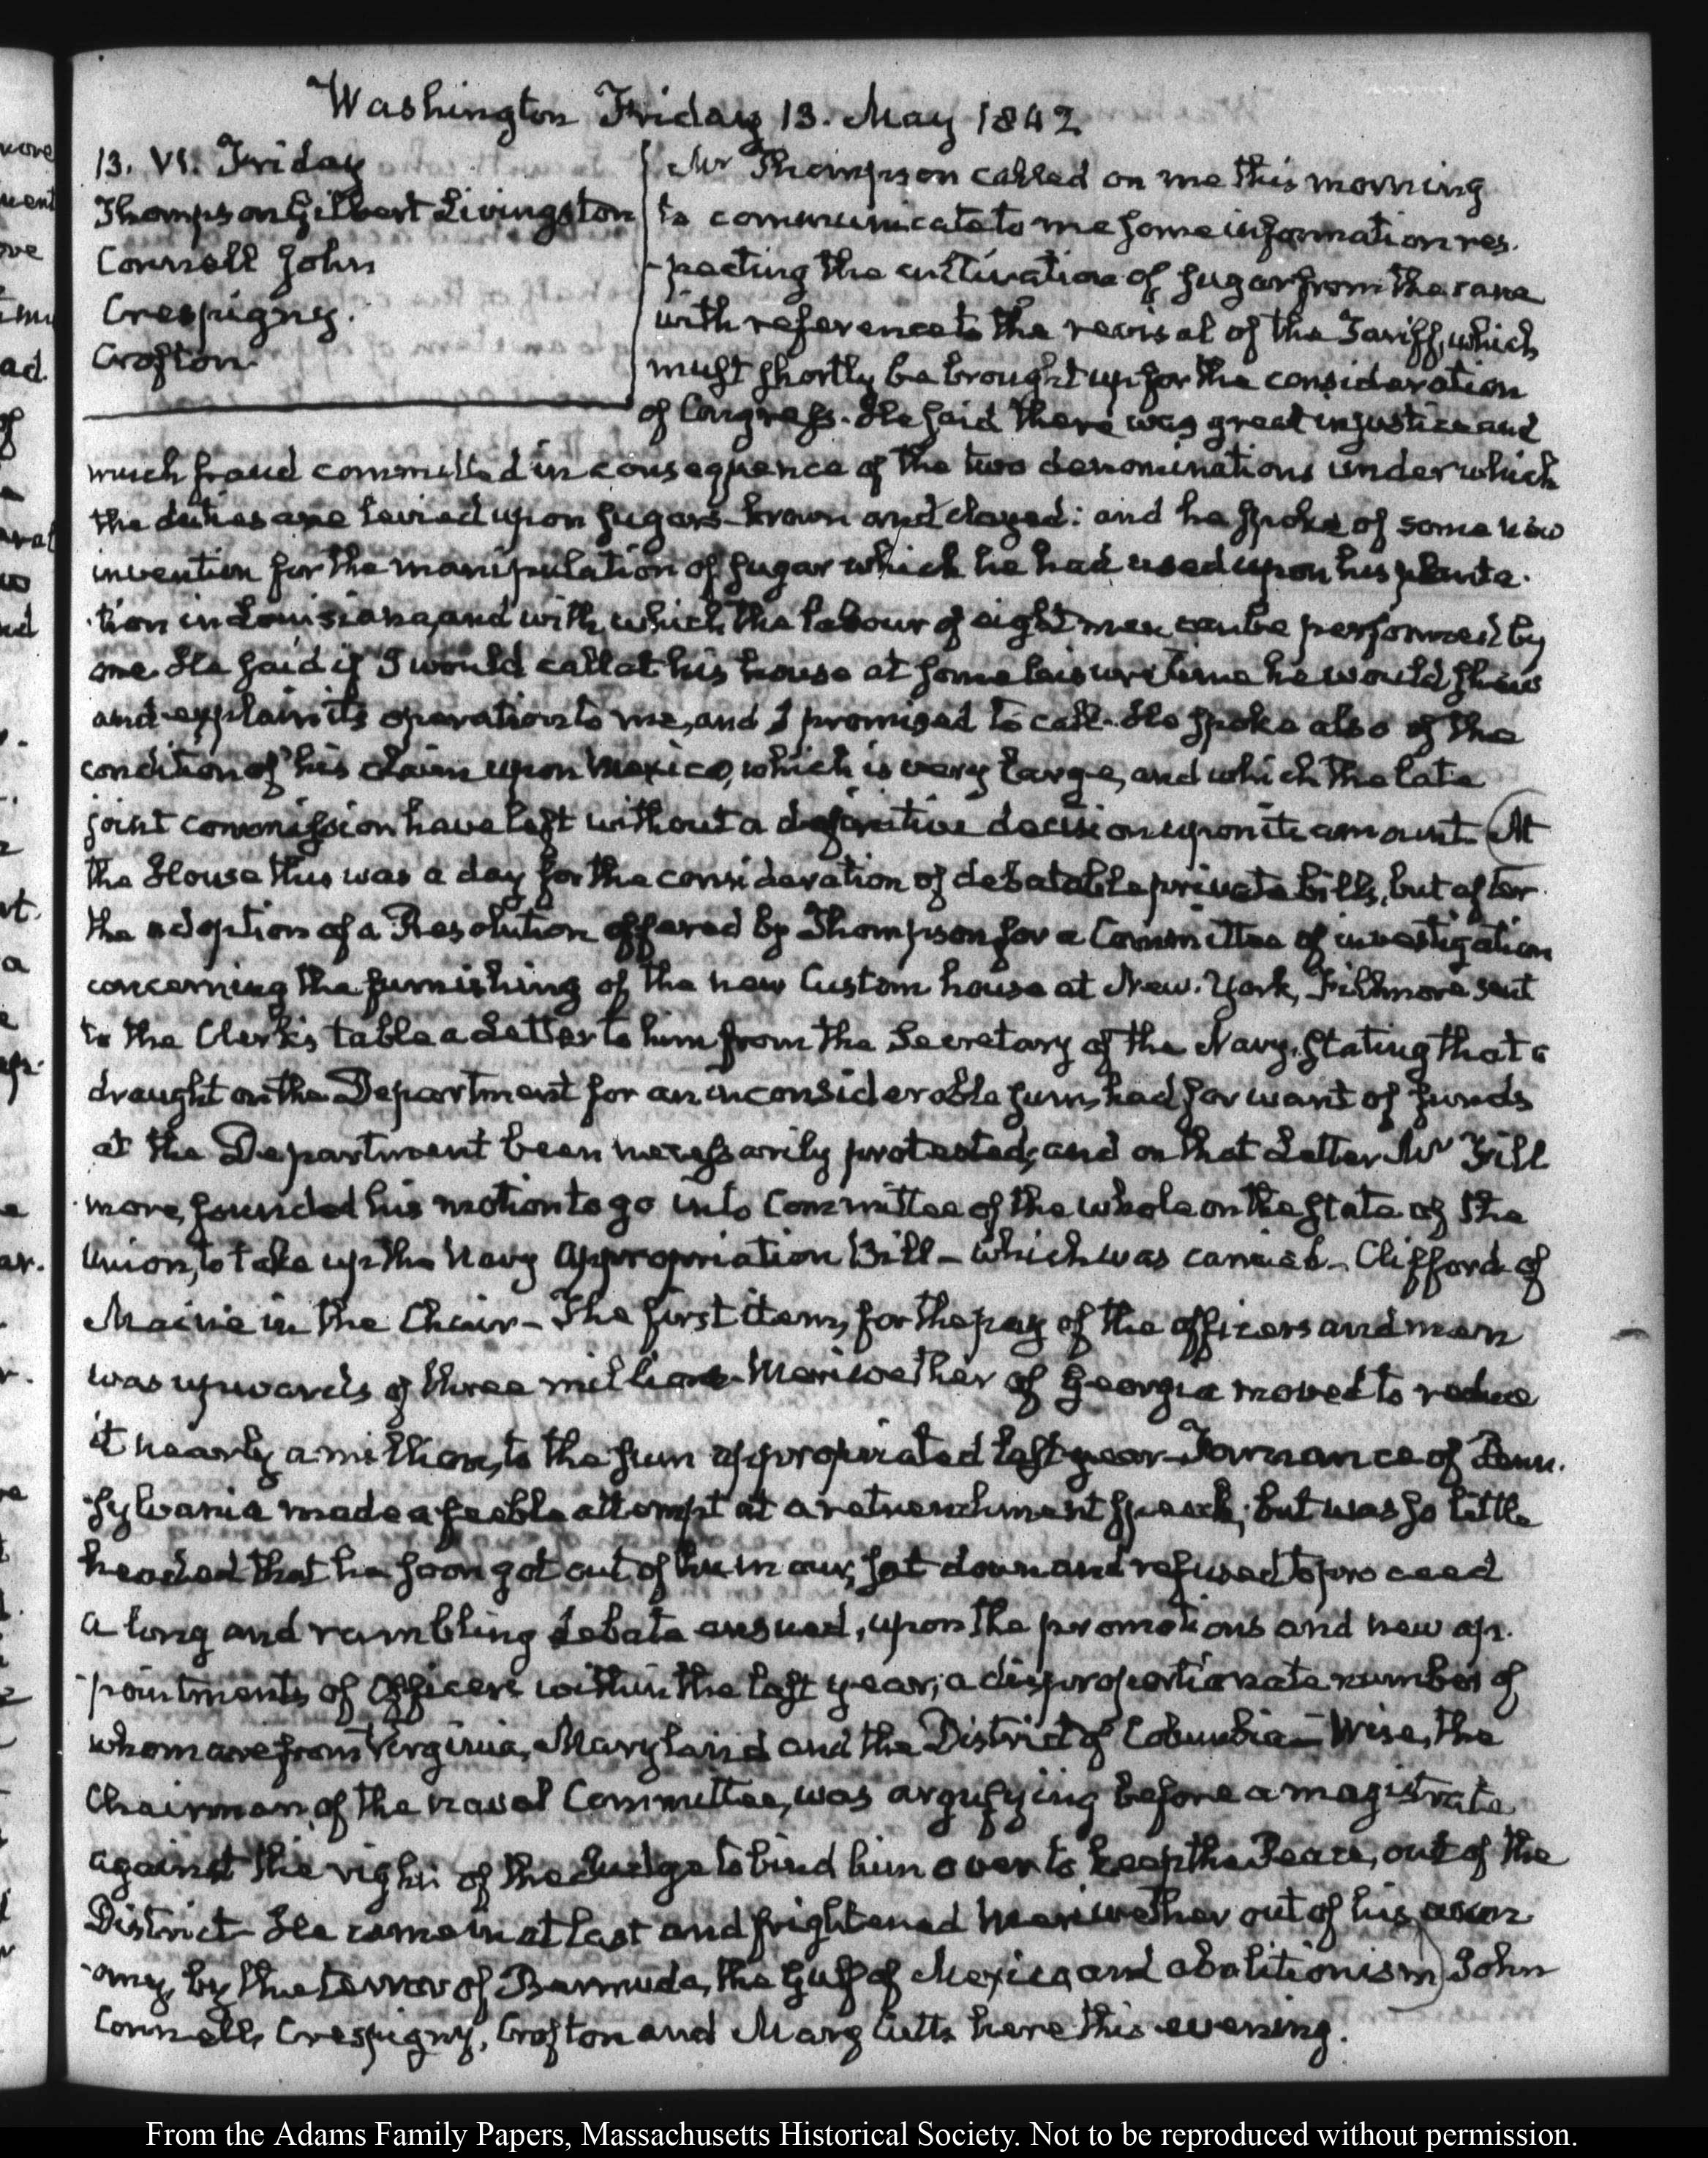 Washington Friday 13. May 1842
13. VI. Friday
Thompson Gilbert Livingston
Connell John
Crespigny.
Crofton.
Mr Thompson called on me this morning
to communicate to me some information res-
-pecting the cultivation of sugar from the cane
with reference to the revisal of the Tariff, which
must shortly be brought up for the consideration
of Congress. He said there was great injustice and
much fraud committed in consequence of the two denominations under which
the duties are levied upon sugars brown and clayed: and he spoke of some new
invention for the manipulation of sugar which he had used upon his planta-
-tion in Louisiana, and with which the labour of eight men can be performed by
one. He said if I would call at his house at some leisure time he would shew
and explain its operation to me, and I promised to call. He spoke also of the
condition of his claim upon Mexico, which is very large, and which the late
joint commission have left without a definitive decision upon its amount. At
the House this was a day for the consideration of debatable private bills, but after
the adoption of a Resolution offered by Thompson for a Committee of investigation
concerning the furnishing of the new Custom house at New-York, Fillmore sent
to the Clerk's table a Letter to him from the Secretary of the Navy, stating that a
draught on the Department for an inconsiderable sum, had for want of funds
at the Department been necessarily protested; and on that Letter Mr Fill
more, founded his motion to go into Committee of the whole on the state of the
Union, to take up the Navy Appropriation Bill – which was carried – Clifford of
Maine in the Chair – The first item, for the pay of the officers and men
was upwards of three millions. Meriwether of Georgia moved to reduce
it nearly a million, to the sum appropriated last year – Tornance of Penn-
sylvania made a feeble attempt at a retrenchment speech; but was so little
heeded that he soon got out of humour, sat down and refused to proceed
a long and rambling debate ensued, upon the promotions and new ap-
-pointments of Officers within the last year; a disproportionate number of
whom are from Virginia, Maryland and the District of Columbia – Wise, the
Chairman of the naval Committee, was argufying before a magistrate
against the right of the Judge to bind him over to keep the Peace, out of the
District – He came in at last and frightened Meriwether out of his econ
-omy, by the terror of Bermuda, the Gulf of Mexico, and abolitionism) John
Connell, Crespigny, Crofton and Mary Cutts here this evening.
From the Adams Family Papers, Massachusetts Historical Society. Not to be reproduced without permission.